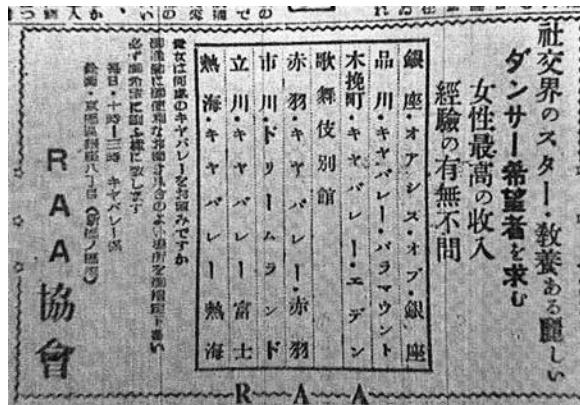 社交界のスター・敎養ある麗しい
ダンサー希望者を求む
女性最高の収入
經驗の有無不問
銀座・オアシス・オブ・銀座
品川・キャバレー・パラマウント
木挽町・キャバレー・エデン
歌舞伎別館
赤羽・キャバレー・赤羽
市川・ドリームランド
立川・キャバレー富士
熱海・キャバレー熱海
貴女は何處のキャバレーをお望みですか
必ず御希望に副ふ様に致します
毎日・十時ー三時 キャバレー係
RAA協會
RAA